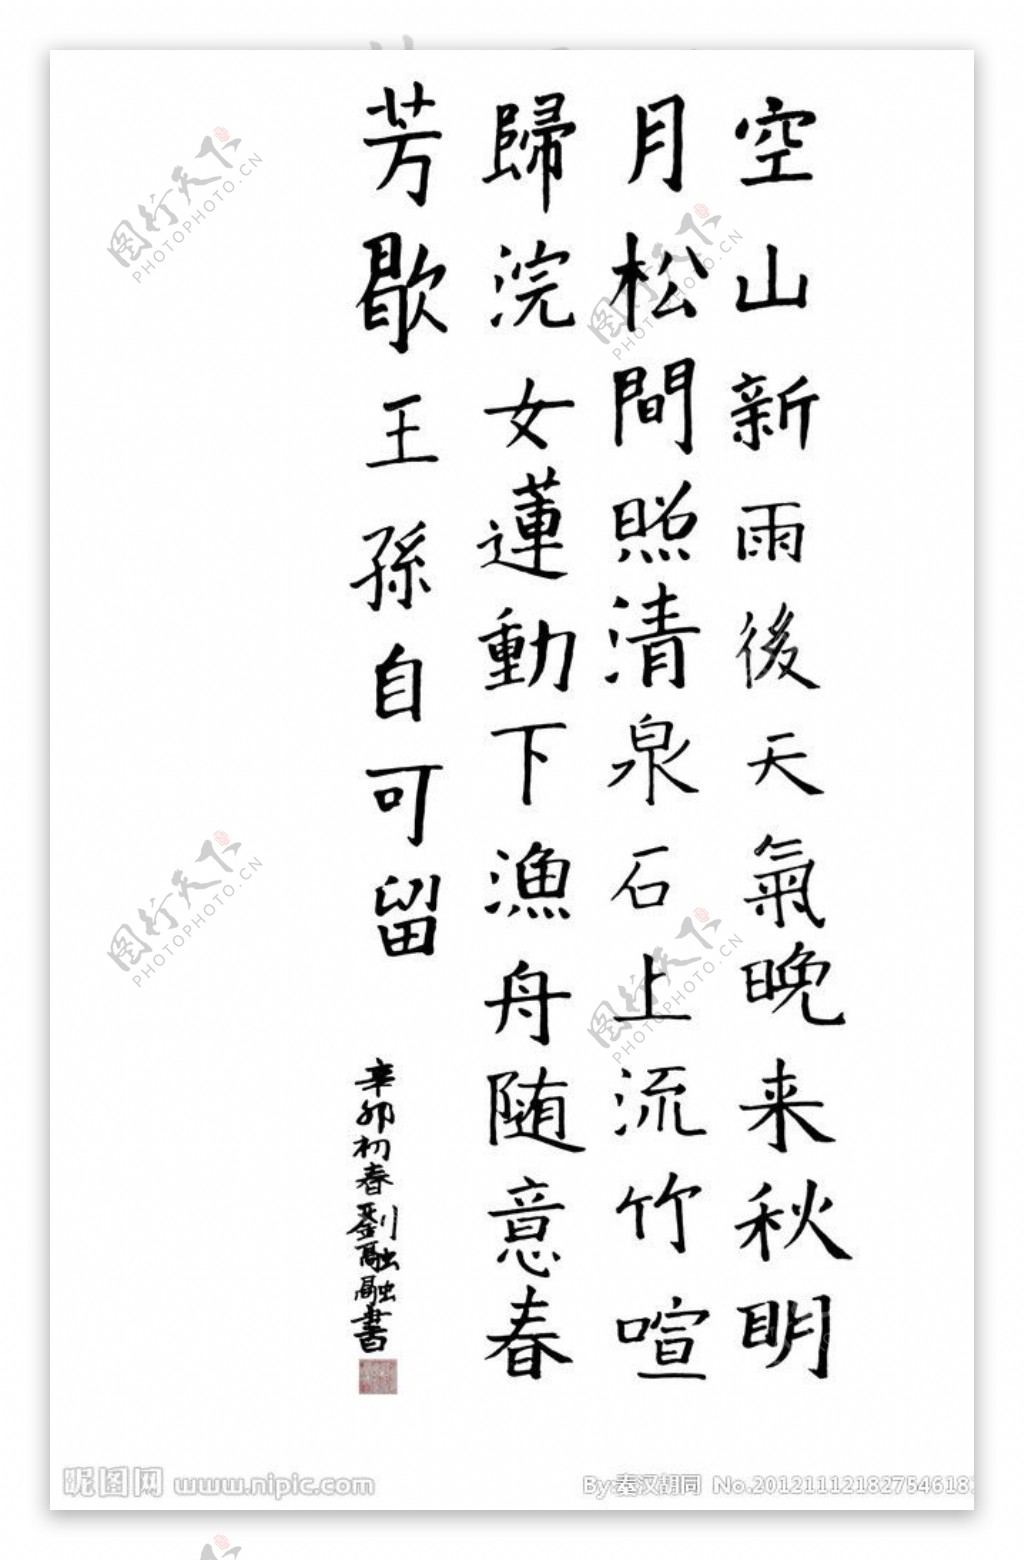 空山新雨後天氣晚来秋明
月松間照清泉石上流竹喧
歸浣女蓮動下漁舟随意春
芳歇王孫自可留
辛卯初春劉融融書
图行天下
PHOTOPHOTO.CN
图行天下
PHOTOPHOTO.CN
图行天下
PHOTOPHOTO.CN
图行天下
PHOTOPHOTO.CN
昵图网 www.nipic.com
By:秦汉胡同 No.2012111218275461